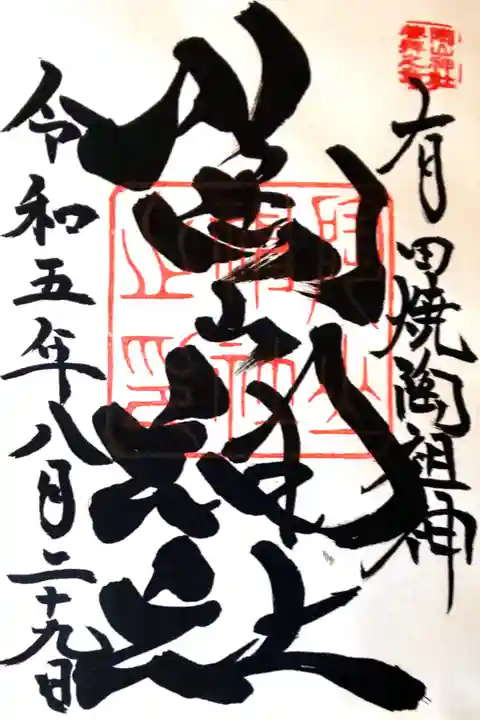 有田焼陶祖神
陶山神社
令和五年八月二十九日